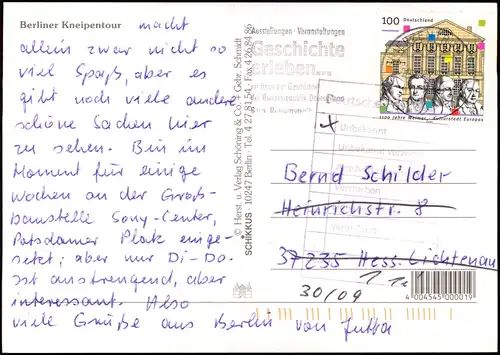 Berliner Kneipentour macht
allein zwar nicht so
viel Spaß, aber es
gibt noch viele andere
schöne Sachen hier
zu sehen. Bin im
Moment für einige
Wochen an der Groß-
baustelle Sony-Center,
Potsdamer Platz einge-
setzt; aber nur Di-Do.
Ist anstrengend, aber
interessant. Also
viele Grüße aus Berlin von Jutta
© Herst. u. Verlag Schöning & Co. + Gebr. Schmidt
SCHIKKUS · 10247 Berlin · Tel. 4 27 81 54 · Fax 4 26 84 86
Ausstellungen · Veranstaltungen
Geschichte
erleben...
im Haus der Geschichte
der Bundesrepublik Deutschland
100 Deutschland
1100 Jahre Weimar · Kulturstadt Europas
Unbekannt
Verstorben
Bernd Schilder
Heinrichstr. 8
37235 Hess. Lichtenau
30/09
4 004545 000019